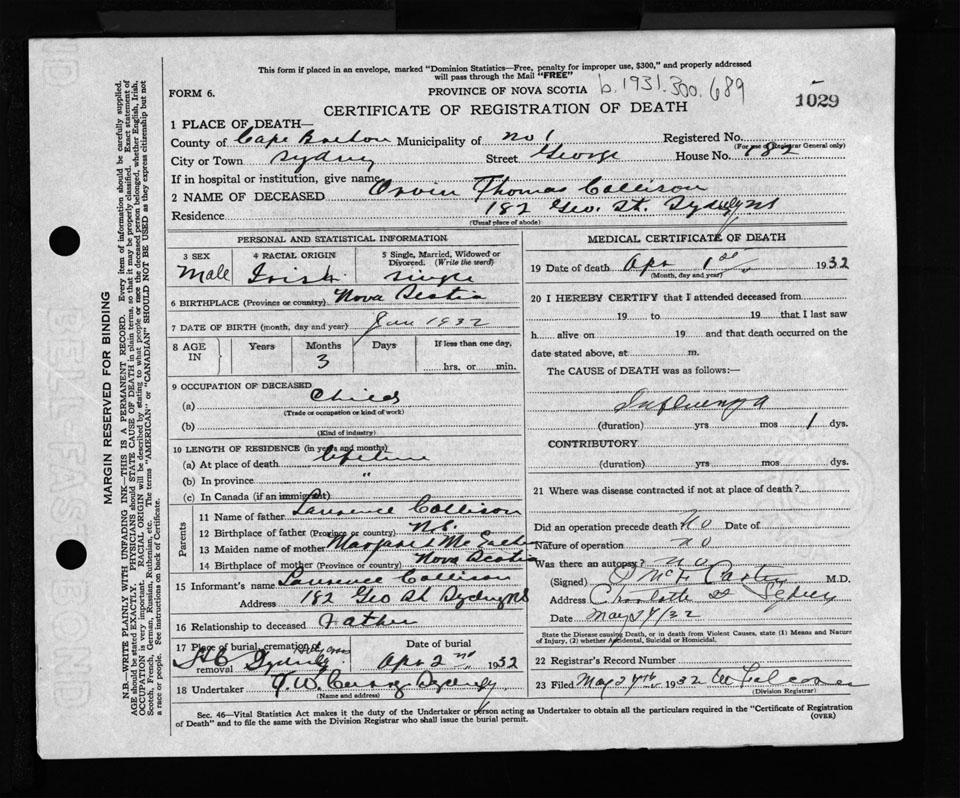 This form if placed in an envelope, marked "Dominion Statistics—Free, penalty for improper use, $300," and properly addressed
will pass through the Mail "FREE"
FORM 6.
PROVINCE OF NOVA SCOTIA
b.1931.300.689
1029
CERTIFICATE OF REGISTRATION OF DEATH
1 PLACE OF DEATH—
County of Cape Breton Municipality of No 1 Registered No.
(For use of Registrar General only)
City or Town Sydney Street George House No. 182
If in hospital or institution, give name
2 NAME OF DECEASED Orvin Thomas Collison
Residence 182 Geo. St. Sydney NS
(Usual place of abode)
PERSONAL AND STATISTICAL INFORMATION
3 SEX
Male
4 RACIAL ORIGIN
Irish
5 Single, Married, Widowed or
Divorced. (Write the word)
Single
6 BIRTHPLACE (Province or country) Nova Scotia
7 DATE OF BIRTH (month, day and year) Jan 1932
8 AGE IN
Years
Months
3
Days
If less than one day,
hrs. or min.
9 OCCUPATION OF DECEASED
(a) Child
(Trade or occupation or kind of work)
(b)
(Kind of industry)
10 LENGTH OF RESIDENCE (in years and months)
(a) At place of death lifetime
(b) In province "
(c) In Canada (if an immigrant)
Parents
11 Name of father Lawrence Collison
12 Birthplace of father (Province or country) N.S.
13 Maiden name of mother Margaret Mc
14 Birthplace of mother (Province or country) Nova Scotia
15 Informant's name Lawrence Collison
Address 182 Geo St Sydney NS
16 Relationship to deceased Father
17 Place of burial, cremation or
removal Holy Cross Sydney
Date of burial
Apr 2nd 1932
18 Undertaker J.W. Sydney
(Name and address)
MEDICAL CERTIFICATE OF DEATH
19 Date of death Apr 1st 1932
(Month, day and year)
20 I HEREBY CERTIFY that I attended deceased from
19 to 19 that I last saw
h alive on 19 and that death occurred on the
date stated above, at m.
The CAUSE of DEATH was as follows:—
Influenza
(duration) yrs mos 1 dys.
CONTRIBUTORY
(duration) yrs mos dys.
21 Where was disease contracted if not at place of death?
Did an operation precede death No Date of
Nature of operation no
Was there an autopsy? no
(Signed) M.D.
Address Charlotte St Sydney
Date May 24/32
State the Disease causing Death, or in death from Violent Causes, state (1) Means and Nature
of Injury, (2) whether Accidental, Suicidal or Homicidal.
22 Registrar's Record Number
23 Filed May 24th 1932
(Division Registrar)
Sec. 46—Vital Statistics Act makes it the duty of the Undertaker or person acting as Undertaker to obtain all the particulars required in the "Certificate of Registration
of Death" and to file the same with the Division Registrar who shall issue the burial permit.
(OVER)
MARGIN RESERVED FOR BINDING
N.B.—WRITE PLAINLY WITH UNFADING INK—THIS IS A PERMANENT RECORD. Every item of information should be carefully supplied.
AGE should be stated EXACTLY. PHYSICIANS should STATE CAUSE OF DEATH in plain terms, so that it may be properly classified. Exact statement of
OCCUPATION is very important. RACIAL ORIGIN will be described by stating to what people or race the deceased person belonged, whether English, Irish,
Scotch, French, German, Russian, Ruthenian, etc. The terms "AMERICAN" or "CANADIAN" SHOULD NOT BE USED as they express citizenship but not
a race or people. See instructions on back of Certificate.